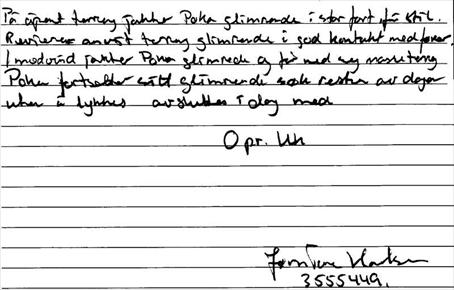 På åpent terreng jakter Poka glimrende i stor fart fin stil.
Revierer anvist terreng glimrende i god kontakt med fører.
I modvind jakter Poka glimrende og får med seg mesteparten
Poka fortsetter sitt glimrende søk resten av dagen
uten å lykkes avslutter i dag med
Opr. Uk
3555449.